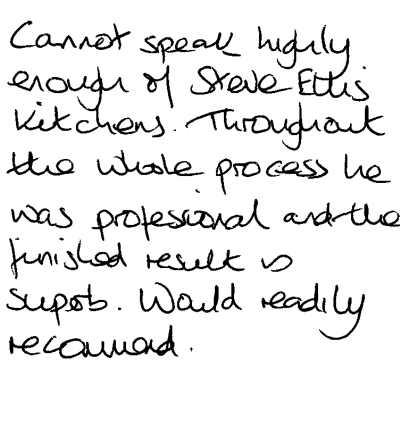 Cannot speak highly
enough of Steve Ellis
Kitchens. Throughout
the whole process he
was professional and the
finished result is
superb. Would readily
recommend.